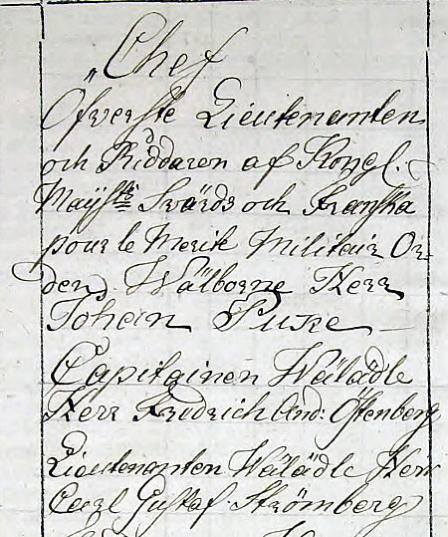 „Chef
Öfverste Lieutenanten
och Riddaren af Kongl.
Maÿsts Svärds och Franska
pour le Merite Militair Or-
den, Wälborne Herr
Johan Puke
Capitainen Wälädle
Herr Fredrich And: Ostenberg
Lieutenanten Wälädle Herr
Carl Gustaf Strömberg